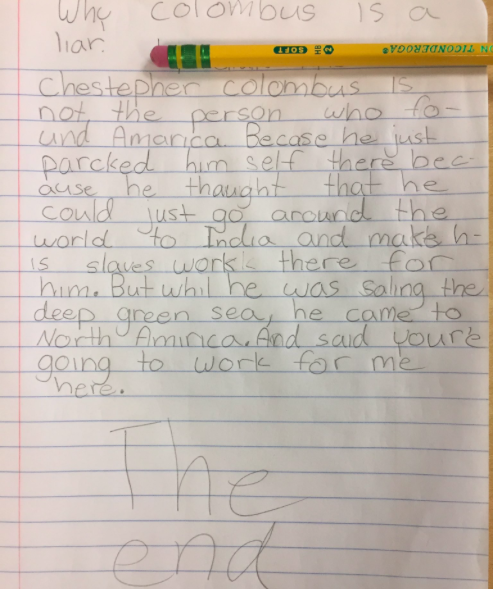 Why colombus is a
liar.
TICONDEROGA®
2 HB
SOFT
Chestepher colombus is
not the person who fo-
und Amarica. Becase he just
parcked him self there bec-
ause he thaught that he
could just go around the
world to India and make h-
is slaves work there for
him. But whil he was saling the
deep green sea, he came to
North Amirica. And said your'e
going to work for me
here.
The
end